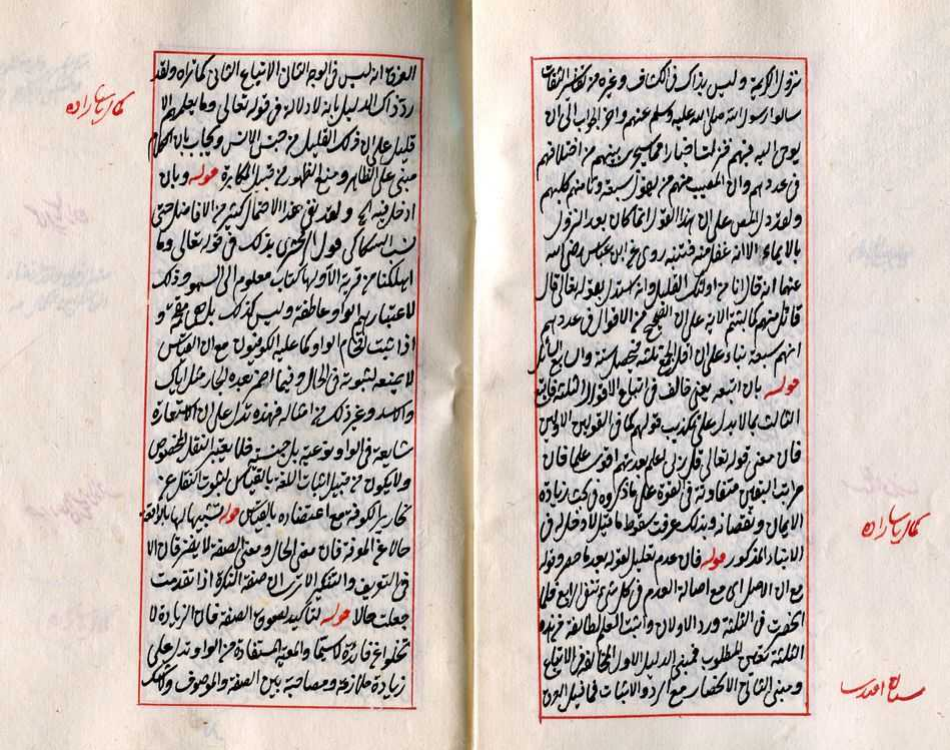 نزول الكريمة وليس بذاك في الكشاف وغيره من تفاسير الثقات
سألوا رسول الله صلى الله عليه وسلم عنهم واخر الجواب الى ان
يوحى اليه فيهم فنزلت اخبارا عما سيجري بينهم من اختلافهم
في عددهم وان المصيب منهم من يقول سبعة وثامنهم كلبهم
ولقد دل المص على ان هذا القول انما كان بعد النزول
بالايماء الا انه غفل عنه فتنبه روي عن ابن عباس رضي الله
عنهما انه قال انا من اولئك القليل وانه استدل بقوله تعالى قال
قائل منهم كم لبثتم الآية على ان الصحيح من الاقوال في عددهم
انهم سبعة بناء على ان اقل الجمع ثلثة
قوله بان اتبعه يعني خالف في اتباع الاقوال الثلثة فاتبع
الثالث بما لا يدل على تكذيب قولهم كما في القولين الاولين
فان معنى قوله تعالى قل ربي اعلم بعدتهم اقوى علما فان
مراتب اليقين متفاوتة في القوة على ما ذكروه في بحث زيادة
الايمان ونقصانه وبذلك عرفت سقوط ما قيل لا دخل له في
الابتداء المذكور قوله فان عدم
مع ان الاصل اي مع اصالة العدم في كل شئ تنفي الرابع فلما
انحصرت في الثلثة ورد الاولان واثبت العلم لطائفة
الثلثة تعين المطلوب فمبنى الدليل الاول المخالفة في الاتباع
ومبنى الثاني الانحصار مع الرد والاثبات فما قيل الفرق
كمال پاشا زاده
الفرق انه ليس في الوجه الثاني الاتباع الثاني كما تراه ولقد
رد ذاك الدليل بانه لا دلالة في قوله تعالى وما يعلمهم الا
قليل على ان ذلك القليل من جنس الانس ويجاب بان الكلام
مبنى على الظاهر ومنع الظهور من قبيل المكابرة قوله وبان
ادخل فيه الخ ولقد نفى هذا الاحتمال كثير من الافاضل حتى
نسب السكاكي قول الزمخشري بذلك في قوله تعالى وما
اهلكنا من قرية الا ولها كتاب معلوم الى السهو وذلك
لاعتبارهم الواو عاطفة وليس كذلك بل هي
اذا ثبت اقحام الواو كما عليه الكوفيون مع ان القياس
لا يمنعه لثبوته في الحال وفيما اضمر بعده الجار مثل اياك
والاسد وغير ذلك من امثاله فهذه تدل على ان الاستعارة
شايعة في الواو نوعية بل جنسية فلا يعتبر النقل الخصوصي
ولا يكون من قبيل اثبات اللغة بالقياس لثبوت النقل عن
نحارير الكوفة مع اعتضاده بالقياس قوله تشبيها لها بالواقعة
حالا عن المعرفة فان معنى الحال ومعنى الصفة لا يفترقان الا
في التعريف والتنكير الا ترى ان صفة النكرة اذا تقدمت
جعلت حالا قوله لتأكيد لصوق الصفة فان الزيادة لا
تخلو عن فائدة لا سيما والمعية المستفادة من الواو تدل على
زيادة ملازمة ومصاحبة بين الصفة والموصوف
كمال پاشا زاده